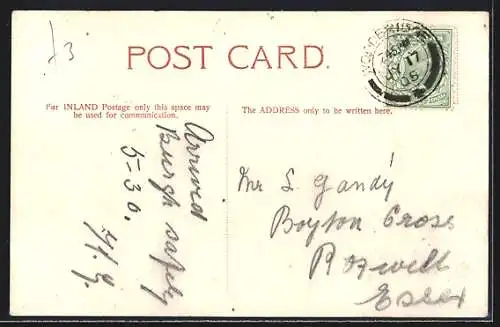 £3
POST CARD.
For INLAND Postage only this space may
be used for communication.
The ADDRESS only to be written here.
Arrived
Burgh safely
5-30.
Mr S. Gandy
Boyton Cross
Roxwell
Essex
17